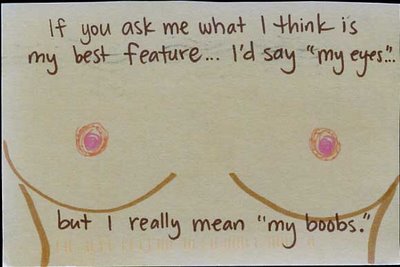 If you ask me what I think is
my best feature... I'd say "my eyes"...
but I really mean "my boobs."